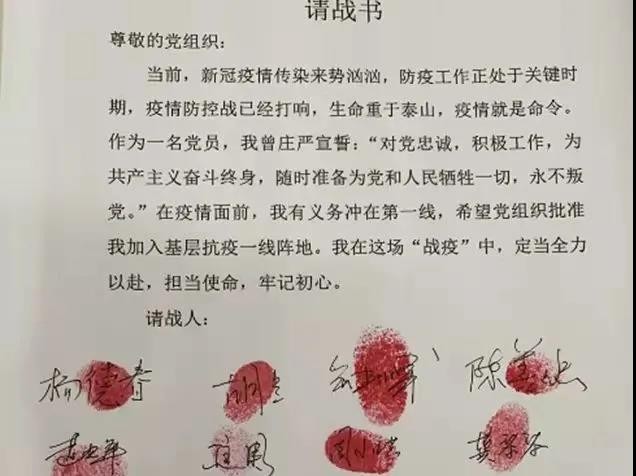 请战书
尊敬的党组织：
当前，新冠疫情传染来势汹汹，防疫工作正处于关键时
期，疫情防控战已经打响，生命重于泰山，疫情就是命令。
作为一名党员，我曾庄严宣誓：“对党忠诚，积极工作，为
共产主义奋斗终身，随时准备为党和人民牺牲一切，永不叛
党。”在疫情面前，我有义务冲在第一线，希望党组织批准
我加入基层抗疫一线阵地。我在这场“战疫”中，定当全力
以赴，担当使命，牢记初心。
请战人：
杨德春